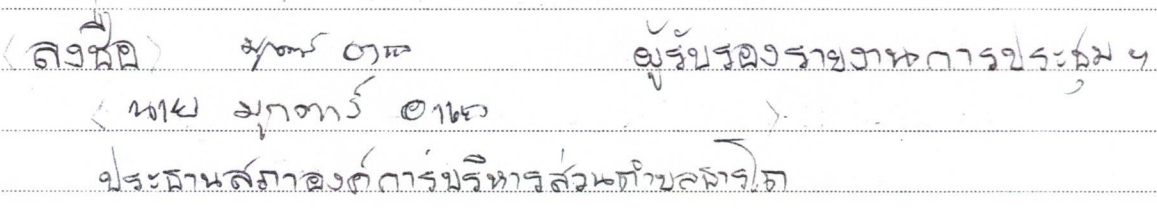 (ลงชื่อ) มุกตาร์ อาแว ผู้รับรองรายงานการประชุมฯ
(นาย มุกตาร์ อาแว)
ประธานสภาองค์การบริหารส่วนตำบลธารโต